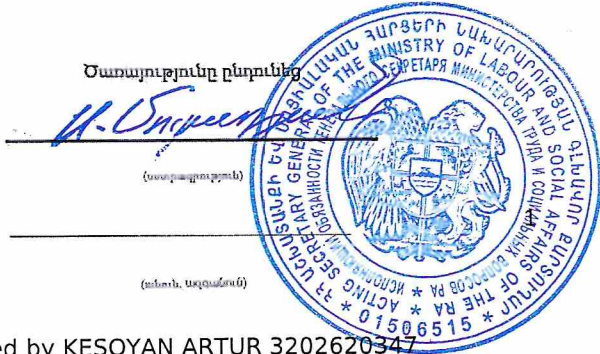 Ծառայությունը ընդունեց
(ստորագրություն)
(անուն, ազգանուն)
ՀՀ ԱՇԽԱՏԱՆՔԻ ԵՎ ՍՈՑԻԱԼԱԿԱՆ ՀԱՐՑԵՐԻ ՆԱԽԱՐԱՐՈՒԹՅԱՆ ԳԼԽԱՎՈՐ ՔԱՐՏՈՒՂԱՐ
ACTING SECRETARY GENERAL OF THE MINISTRY OF LABOUR AND SOCIAL AFFAIRS OF THE RA
ИСПОЛНЯЮЩИЙ ОБЯЗАННОСТИ ГЕНЕРАЛЬНОГО СЕКРЕТАРЯ МИНИСТЕРСТВА ТРУДА И СОЦИАЛЬНЫХ ВОПРОСОВ РА
* 01506515 *
ed by KESOYAN ARTUR 3202620347